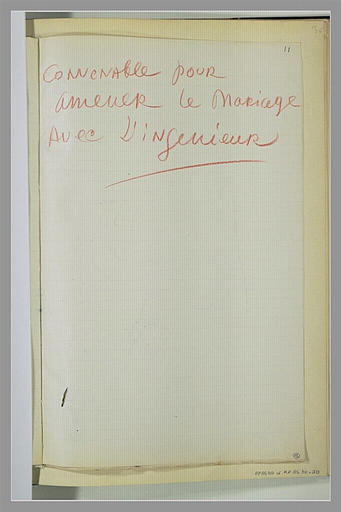 11
Convenable pour
amener le Mariage
Avec L'ingenieur